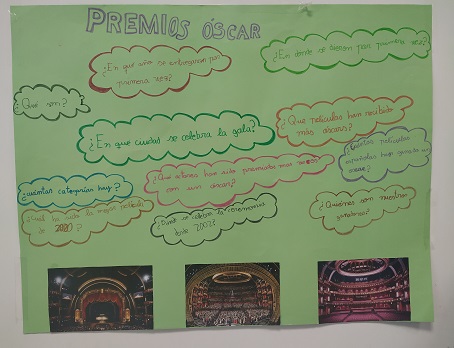 PREMIOS ÓSCAR
¿En qué año se entregaron por
primera vez?
¿En donde se
por primera vez?
¿Qué son?
¿En que ciudad se celebra la gala?
¿Que peliculas han recibido
más óscars?
¿Que actores han sido premiados mas veces
con un óscar?
¿Cuántas peliculas
españolas han ganado un
oscar?
¿cuántas categorías hay?
¿Cuál ha sido la mejor pelicula
de 2020?
¿Dónde se celebra la ceremonia
desde 2002?
¿Quiénes son nuestros
ganadores?